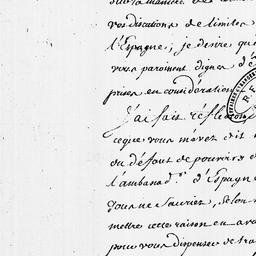 sur la maniere de
vos discutions de limites
l'Espagne, je desire que
vous paroissent dignes d'ê
prises en considération
J'ai fait réflexion
ce que vous m'avez dit
ou défaut de pouvoirs
l'ambassad.r d'Espagne
vous ne sauriez, selon
mettre cette raison en ava
pour vous dispenser de tra